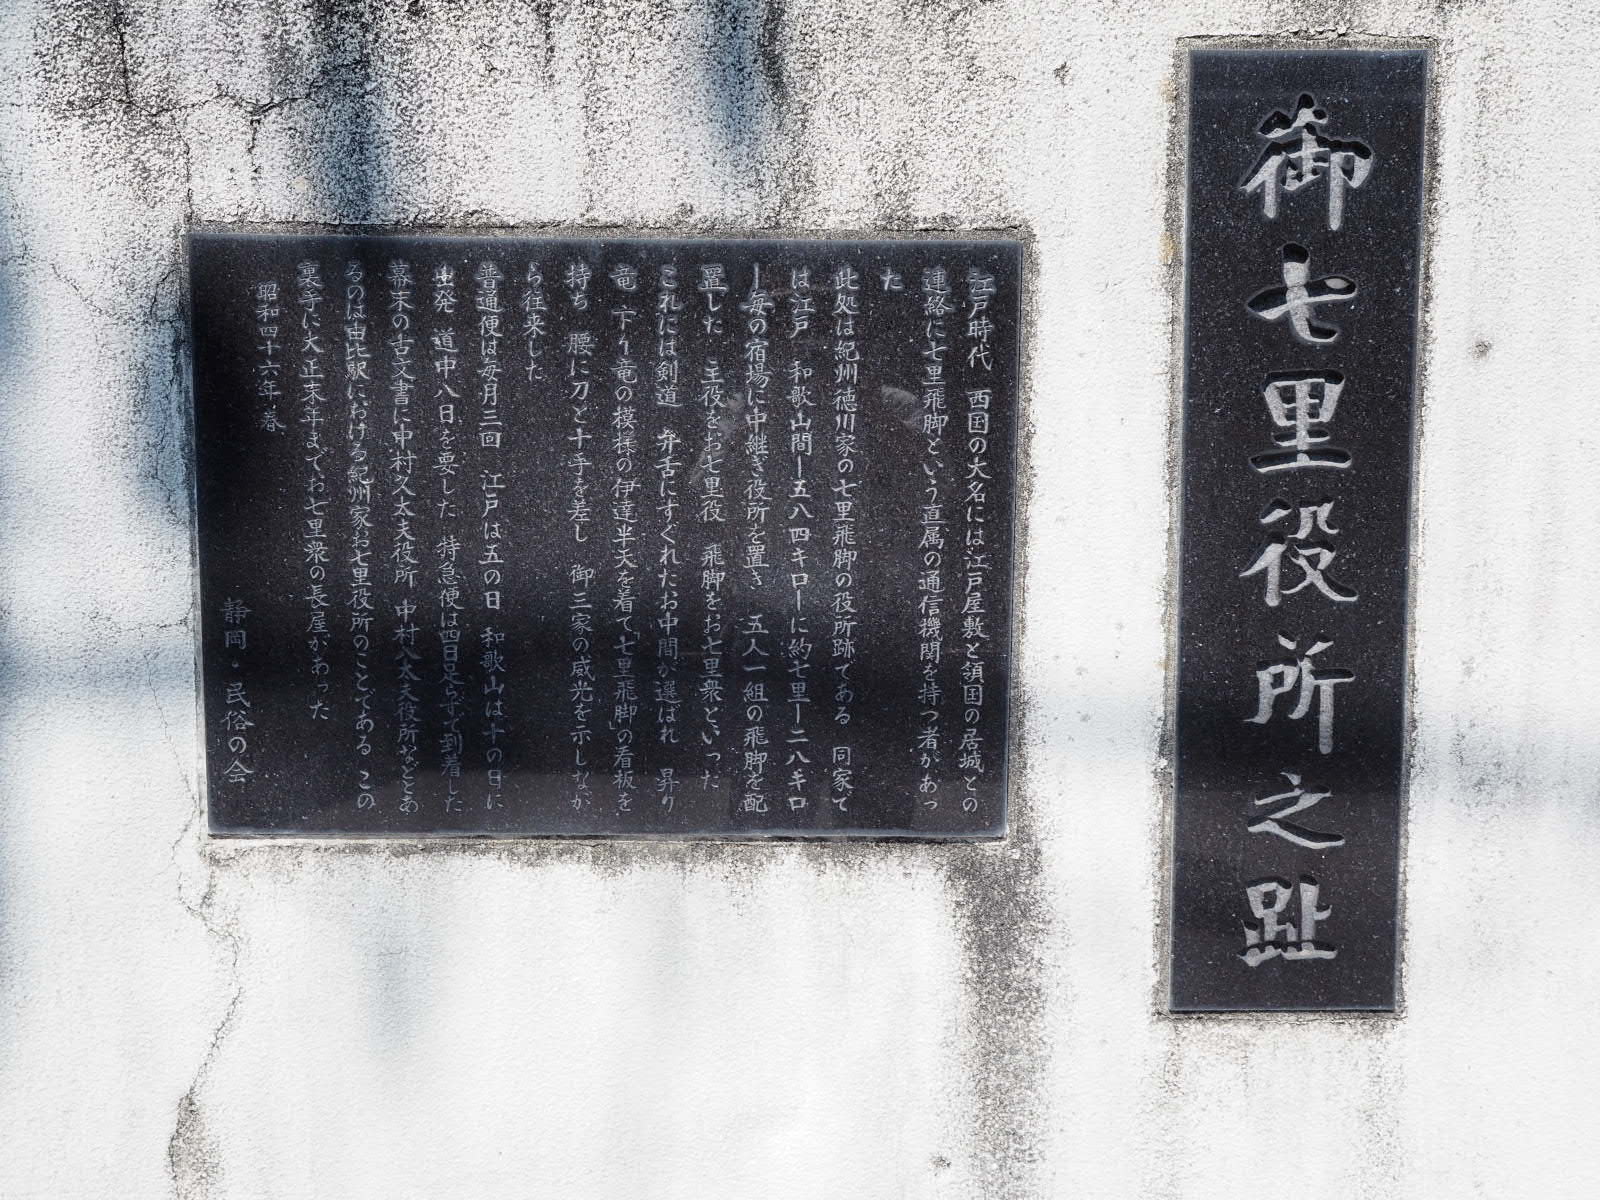 御七里役所之趾
江戸時代　西国の大名には江戸屋敷と領国の居城との
連絡に七里飛脚という直属の通信機関を持つ者があっ
た
此処は紀州徳川家の七里飛脚の役所跡である　同家で
は江戸　和歌山間ー五八四キローに約七里ー二八キロ
ー毎の宿場に中継ぎ役所を置き　五人一組の飛脚を配
置した　主役をお七里役　飛脚をお七里衆といった
これには剣道　弁舌にすぐれたお中間が選ばれ　昇り
竜　下り竜の模様の伊達半天を着て「七里飛脚」の看板を
持ち　腰に刀と十手を差し　御三家の威光を示しなが
ら往来した
普通便は毎月三回　江戸は五の日　和歌山は十の日に
出発　道中八日を要した　特急便は四日足らずで到着した
幕末の古文書に中村久太夫役所　中村八太夫役所などとあ
るのは由比駅における紀州家お七里役所のことである　この
裏手に大正末年までお七里衆の長屋があった
昭和四十六年　春
静岡・民俗の会